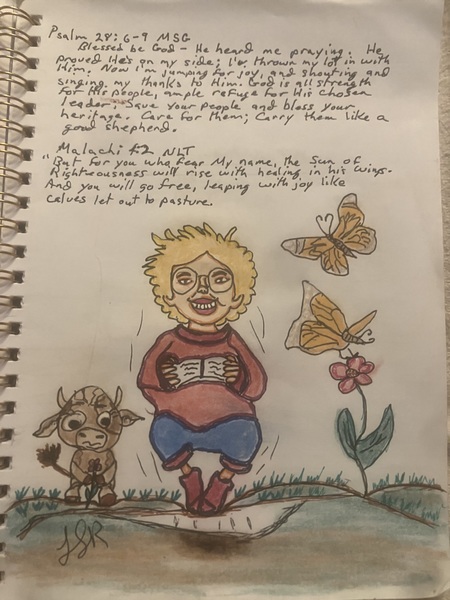 Psalm 28:6-9 MSG
Blessed be God - He heard me praying. He
proved He's on my side; I've thrown my lot in with
Him. Now I'm jumping for joy, and shouting and
singing my thanks to Him. God is all strength
for His people, ample refuge for His chosen
leader: Save your people and bless your
heritage. Care for them; Carry them like a
good shepherd.
Malachi 4:2 NLT
"But for you who fear My name, the Sun of
Righteousness will rise with healing in his wings.
And you will go free, leaping with joy like
calves let out to pasture.
JSR